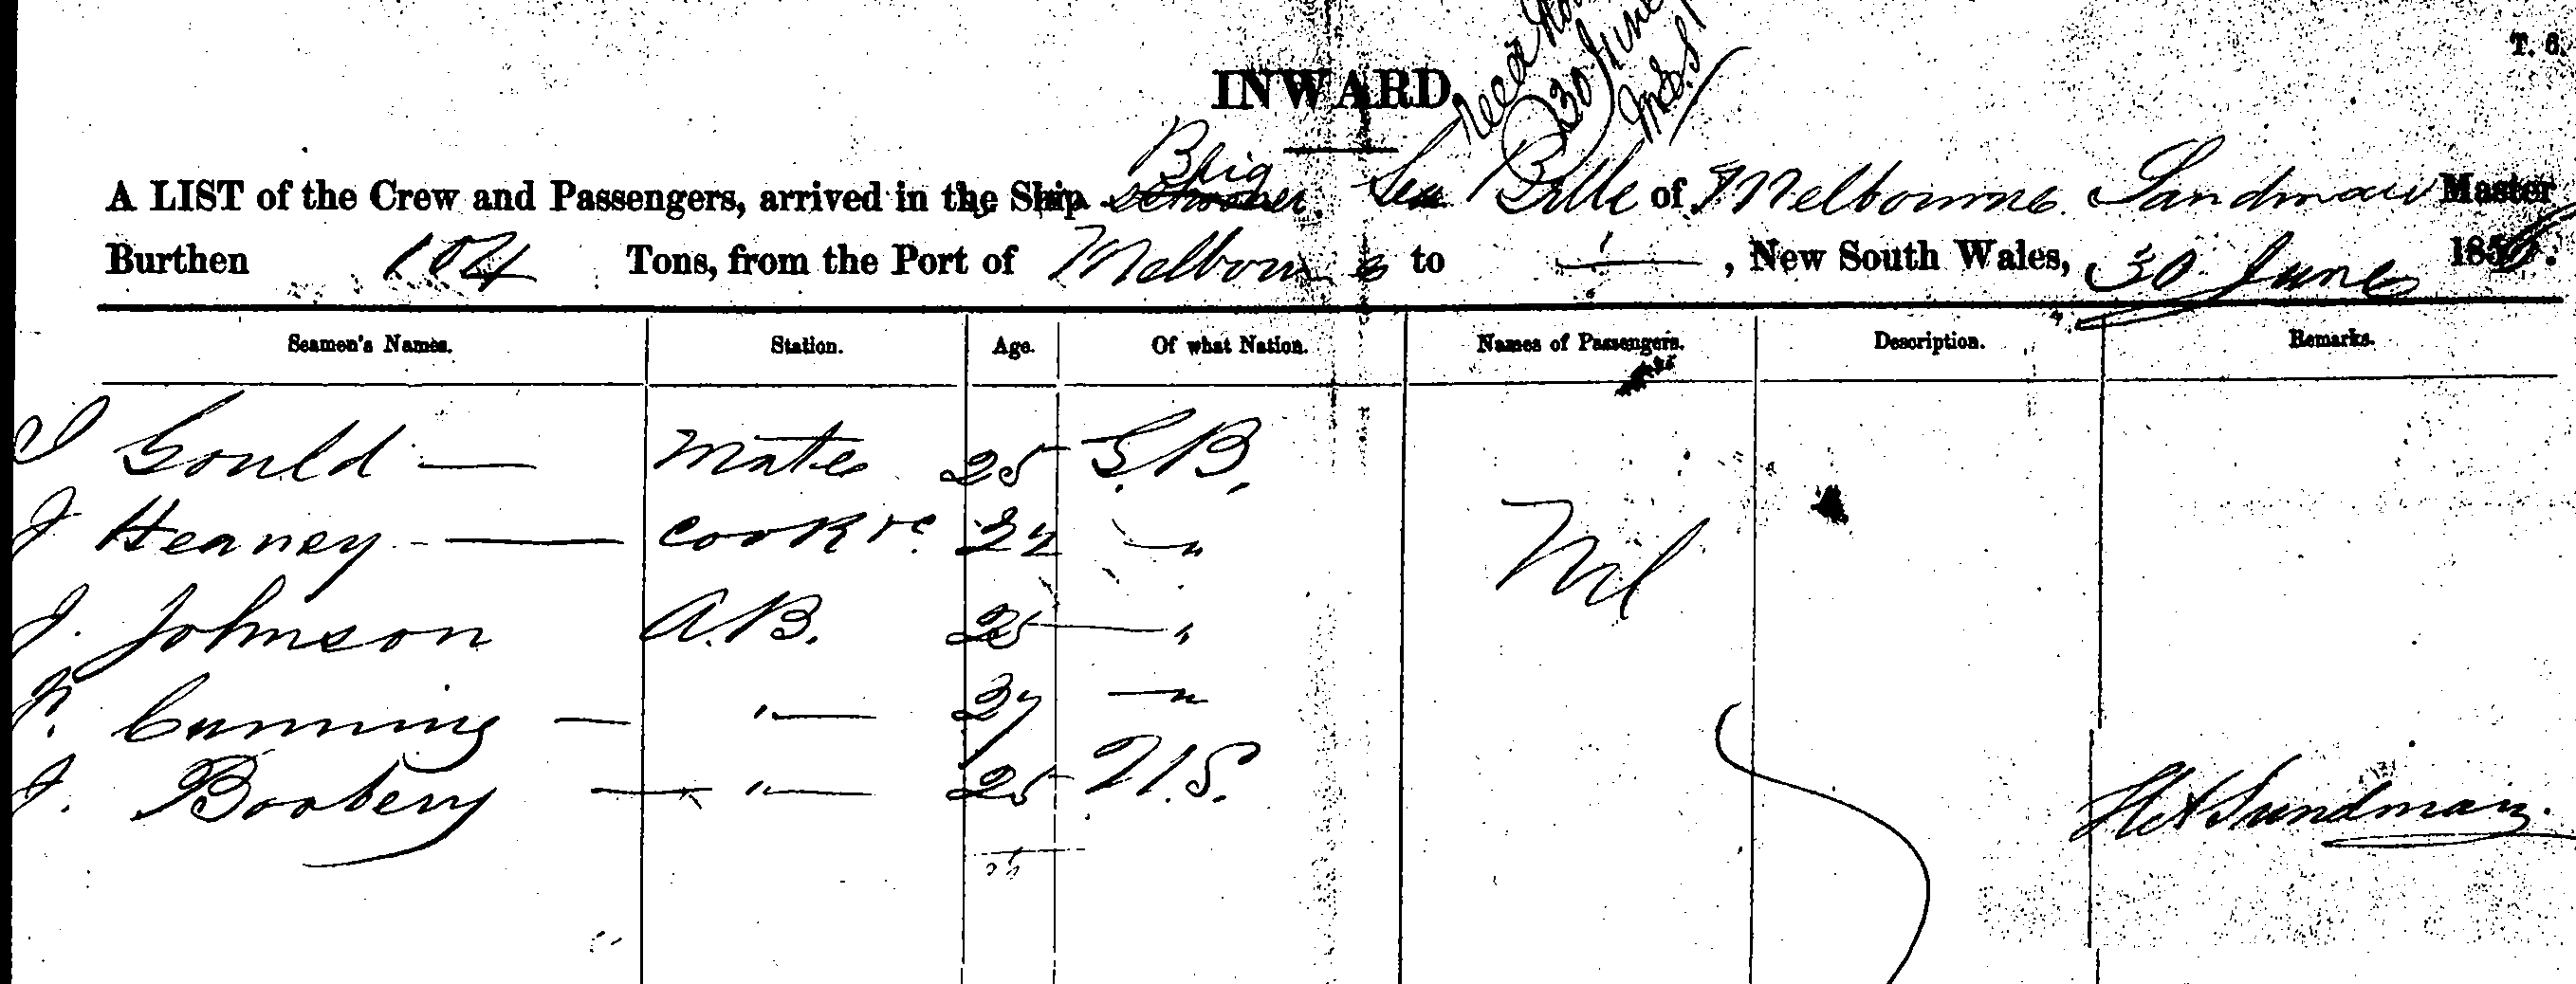 T. 6.
INWARD.
30 June
A LIST of the Crew and Passengers, arrived in the Ship Brig Sea Belle of Melbourne Sandman Master
Burthen 104 Tons, from the Port of Melbourne to , New South Wales, 30 June 185
Seamen's Names. Station. Age. Of what Nation. Names of Passengers. Description. Remarks.
J Gould — Mate 25 G.B.
J Heaney — Cook &c. — „ Nil
J. Johnson A.B. 25 — „
Cunning — „ — 37 — „
J. Boobery — „ — 25 U.S. Sundman